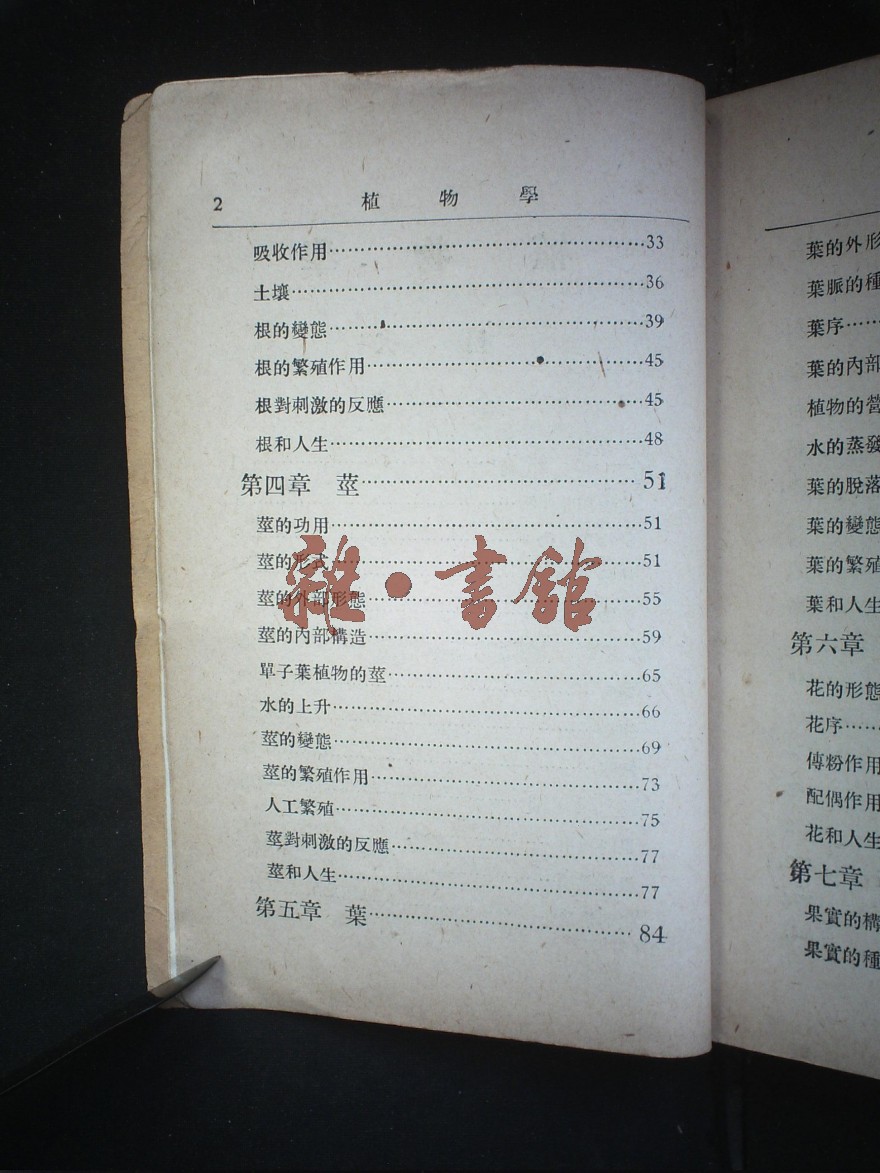 2 植物學
吸收作用……33
土壤……36
根的變態……39
根的繁殖作用……45
根對刺激的反應……45
根和人生……48
第四章 莖……51
莖的功用……51
莖的形式……51
莖的外部形態……55
莖的內部構造……59
單子葉植物的莖……65
水的上升……66
莖的變態……69
莖的繁殖作用……73
人工繁殖……75
莖對刺激的反應……77
莖和人生……77
第五章 葉……84
雜·書館
葉的外形
葉脈的種
葉序……
葉的內部
植物的營
水的蒸發
葉的脫落
葉的變態
葉的繁殖
葉和人生
第六章
花的形態
花序……
傳粉作用
配偶作用
花和人生
第七章
果實的構
果實的種